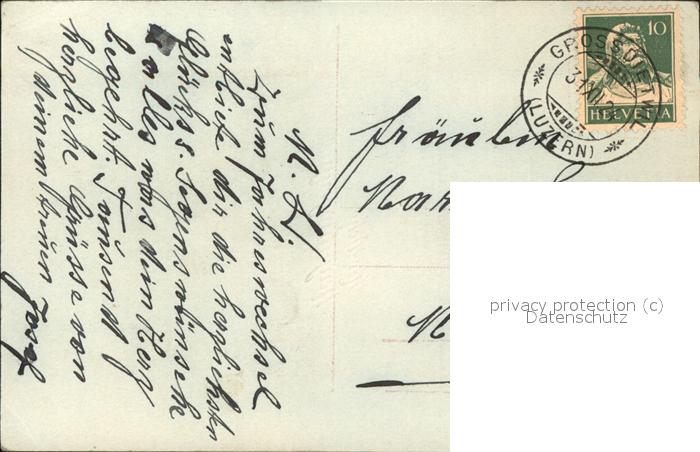 M. L.
Zum Jahreswechsel
entbiet dir die herzlichsten
Glücks & Segenswünsche
& alles was dein Herz
begehrt. Tausend
herzliche Grüsse von
deinem treuen Josef
Fräulein
Mar
M
10
HELVETIA
GROSSDIETWIL
31 XII 2
(LUZERN)
privacy protection (c)
Datenschutz